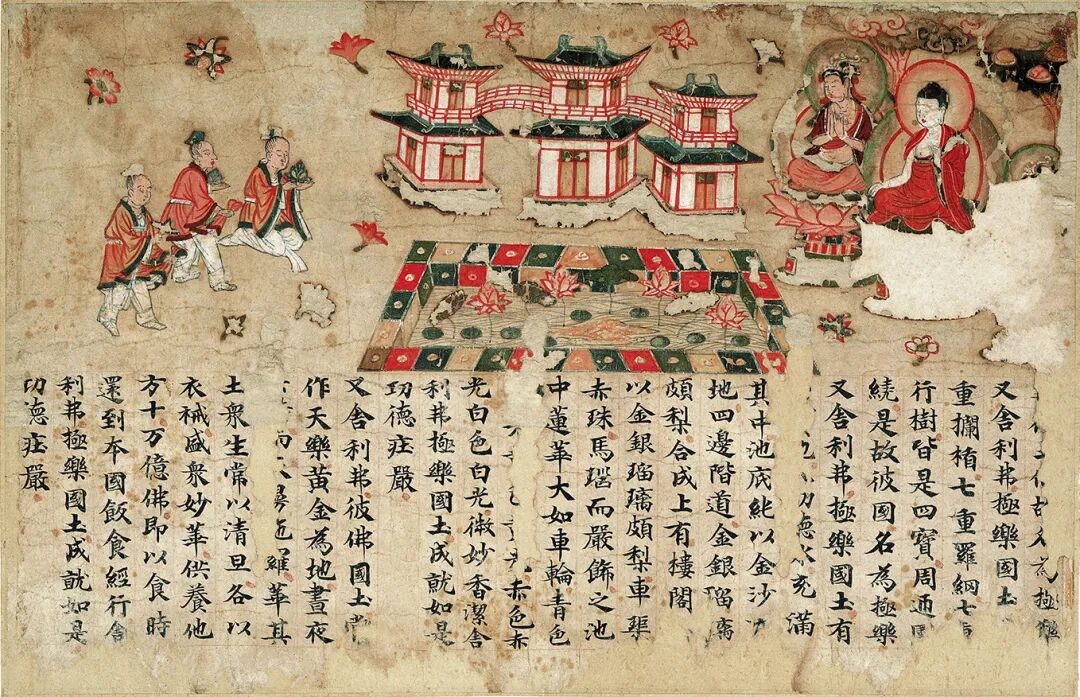 為極
又舍利弗極樂國土
重攔楯七重羅網七重
行樹皆是四寶周迊
繞是故彼國名為極樂
又舍利弗極樂國土有
功德水充滿
其中池底純以金沙
地四邊階道金銀瑠璃
頗梨合成上有樓閣
以金銀瑠璃頗梨車璖
赤珠馬瑙而嚴飾之池
中蓮華大如車輪青色
光赤色赤
光白色白光微妙香潔舍
利弗極樂國土成就如是
功德庄嚴
又舍利弗彼佛國土常
作天樂黃金為地晝夜
而羅華其
土衆生常以清旦各以
衣祴盛衆妙華供養他
方十万億佛即以食時
還到本國飯食經行舍
利弗極樂國土成就如是
功德庄嚴